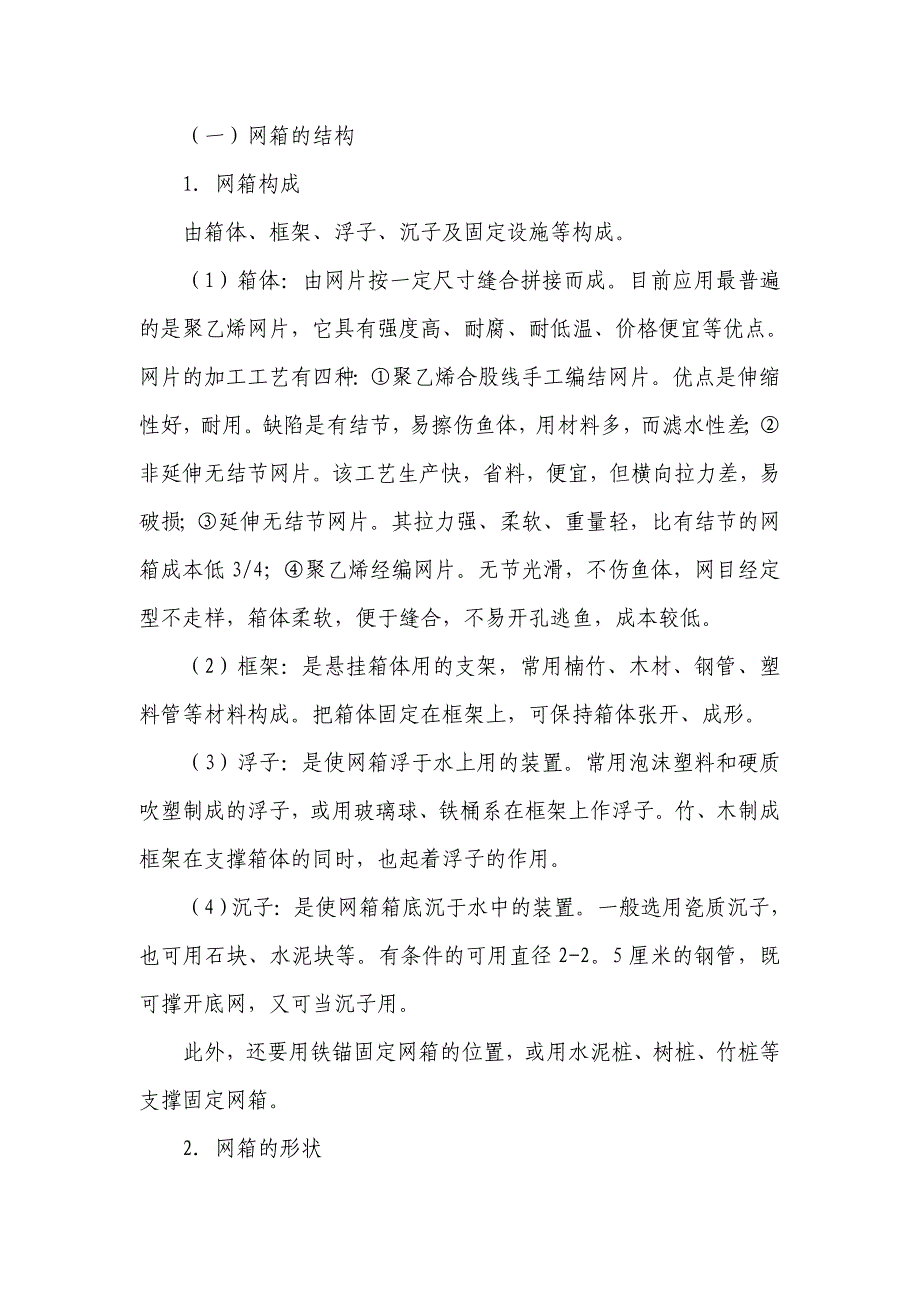 （一）网箱的结构
1．网箱构成
由箱体、框架、浮子、沉子及固定设施等构成。
（1）箱体：由网片按一定尺寸缝合拼接而成。目前应用最普遍
的是聚乙烯网片，它具有强度高、耐腐、耐低温、价格便宜等优点。
网片的加工工艺有四种：①聚乙烯合股线手工编结网片。优点是伸缩
性好，耐用。缺陷是有结节，易擦伤鱼体，用材料多，而滤水性差；②
非延伸无结节网片。该工艺生产快，省料，便宜，但横向拉力差，易
破损；③延伸无结节网片。其拉力强、柔软、重量轻，比有结节的网
箱成本低 3/4；④聚乙烯经编网片。无节光滑，不伤鱼体，网目经定
型不走样，箱体柔软，便于缝合，不易开孔逃鱼，成本较低。
（2）框架：是悬挂箱体用的支架，常用楠竹、木材、钢管、塑
料管等材料构成。把箱体固定在框架上，可保持箱体张开、成形。
（3）浮子：是使网箱浮于水上用的装置。常用泡沫塑料和硬质
吹塑制成的浮子，或用玻璃球、铁桶系在框架上作浮子。竹、木制成
框架在支撑箱体的同时，也起着浮子的作用。
（4）沉子：是使网箱箱底沉于水中的装置。一般选用瓷质沉子，
也可用石块、水泥块等。有条件的可用直径 2-2。5 厘米的钢管，既
可撑开底网，又可当沉子用。
此外，还要用铁锚固定网箱的位置，或用水泥桩、树桩、竹桩等
支撑固定网箱。
2．网箱的形状